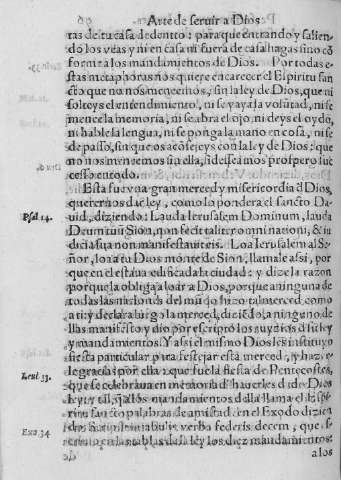 Arte de seruir a Dios
tas de tu casa de dentro: para que entrando y salien-
do los veas y ni en casa ni fuera de casa hagas sino cõ
forme a los mandamientos de Dios. Por todas e-
stas metaphoras nos quiere encarecer el Espiritu san
cto que no nos meneemos, sin la ley de Dios, que ni
solteys el entendimiento, ni se vaya la volũtad, ni se
menee la memoria, ni se abra el ojo, ni deys el oydo,
ni hable la lengua, ni se ponga la mano en cosa, ni se
de passo, sin que os acõsejeys con la ley de Dios: que
no nos meneemos sin ella, si desseamos prospero suc
cesso en todo.
Esta fue vna gran merced y misericordia d̃ Dios,
querernos dar ley, como lo pondera el sancto Da-
Psal 14. uid, diziendo: Lauda Ierusalem Dominum, lauda
Deum tuũ Sion, non fecit taliter omni nationi, & iu
dicia sua non manifestauit eis. Loa Ierusalem al Se-
ñor, loa a tu Dios monte de Sion, llamale assi, por
que en el estaua edificada la ciudad: y dize la razon
porque la obliga a loar a Dios, porque a ninguna de
todas las naciones del mũdo hizo tal merced como
a ti: y declara luego la merced, diciẽdo, a ninguno de
llas manifesto y dio por escripto los juyzios d̃ su ley
y mandamientos. Y assi el mismo Dios les instituyo
fiesta particular para festejar esta merced, y hazer
Leui 23. le gracias por ella: que fue la fiesta de Pentecostes,
que se celebraua en memoria d̃ hauerles dado Dios
ley: y tal, q̃ a los mandamientos della llama el Espi-
ritu sancto palabras de amistad en el Exodo dizien
Exo. 34. do: verba federis decem, que e-
en las tablas de la ley los diez mandamientos:
a los